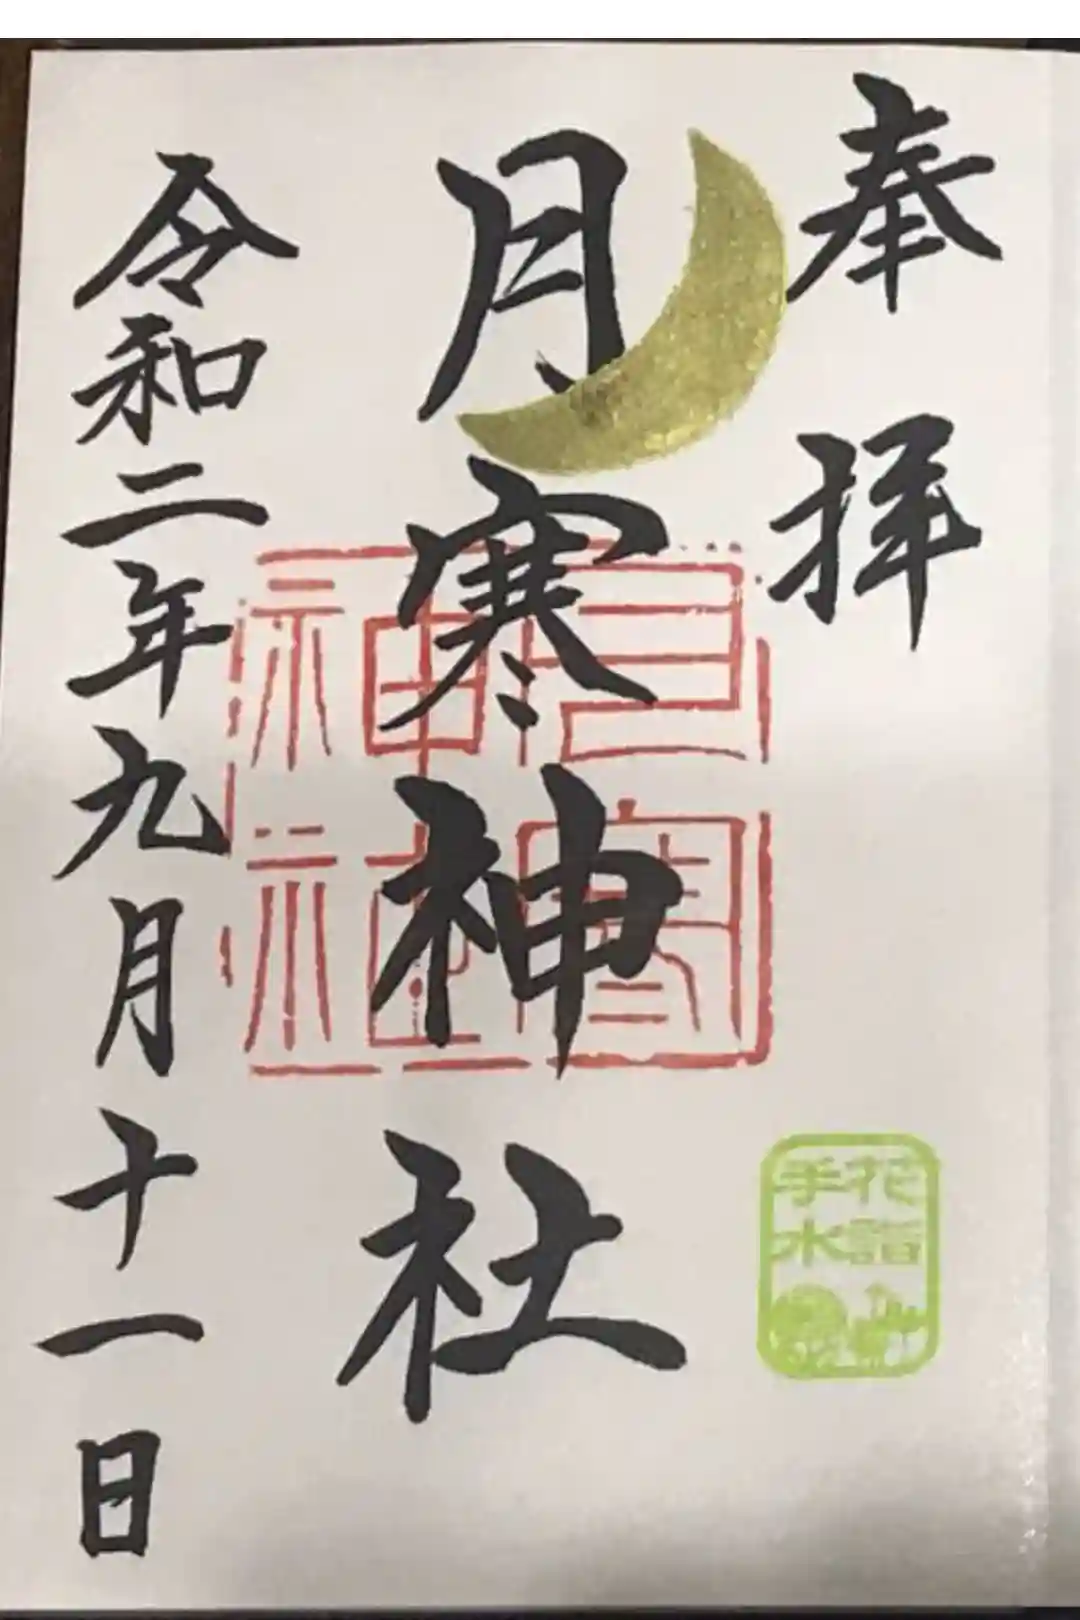 奉拝
月寒神社
月寒神社
花詣
手水
令和二年九月十一日